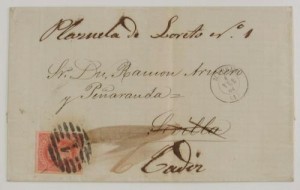 Plazuela de Loreto nº. 1
Sr. Dn. Ramon Armero
y Peñaranda
Sevilla
Cadiz